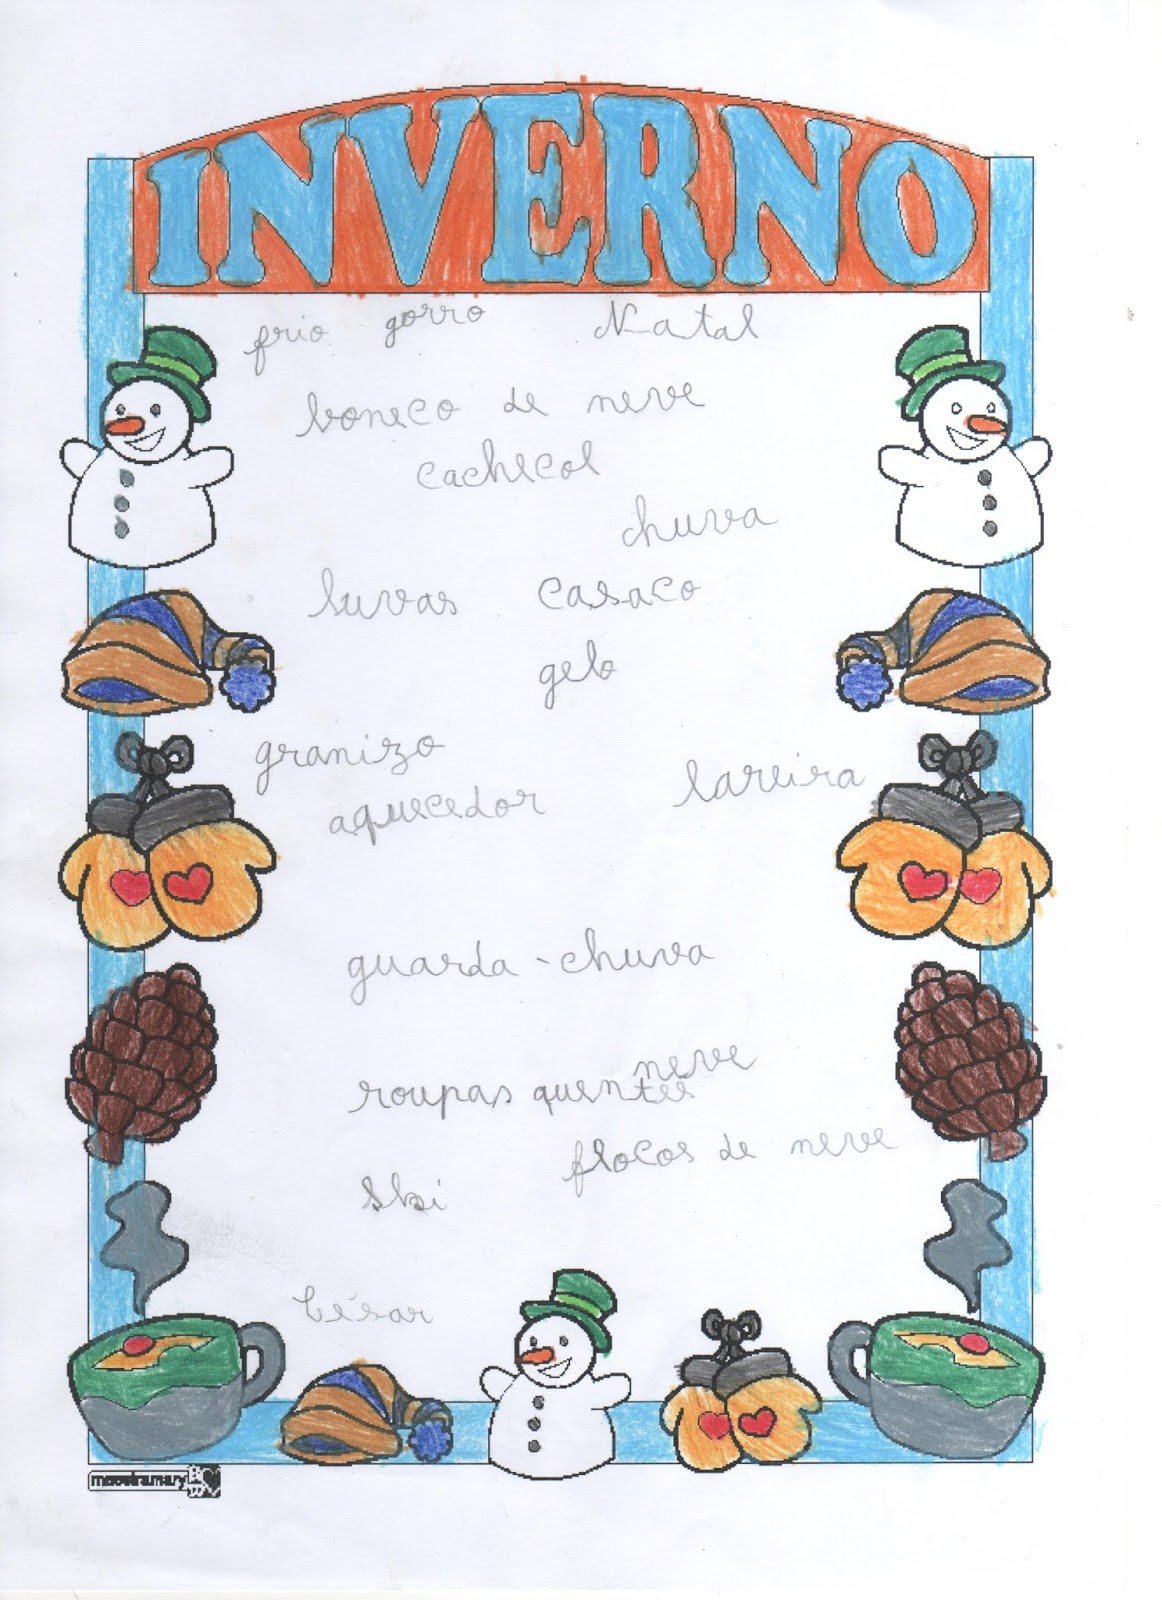 INVERNO
frio gorro Natal
boneco de neve
cachecol
chuva
luvas casaco
gelo
granizo
lareira
aquecedor
guarda-chuva
neve
roupas quentes
flocos de neve
ski
César